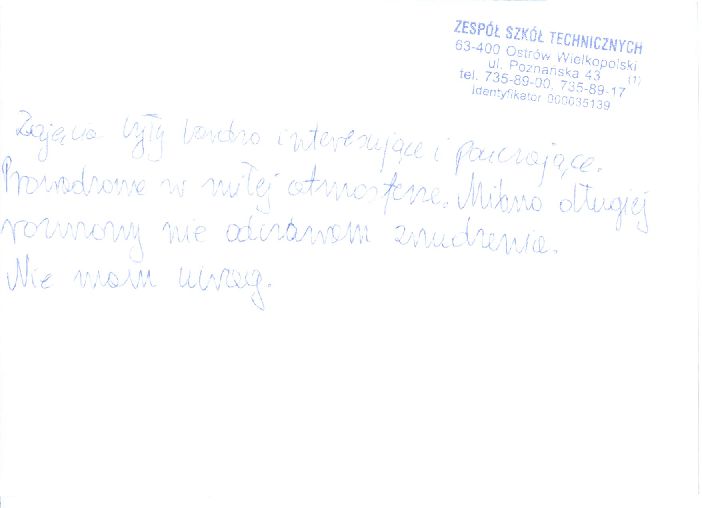 ZESPÓŁ SZKÓŁ TECHNICZNYCH
63-400 Ostrów Wielkopolski
ul. Poznańska 43 (1)
tel. 735-89-00, 735-89-17
Identyfikator 000035139
Zajęcia były bardzo interesujące i pouczające.
Prowadzone w miłej atmosferze. Mimo długiej
rozmowy nie odczuwam znudzenia.
Nie mam uwag.